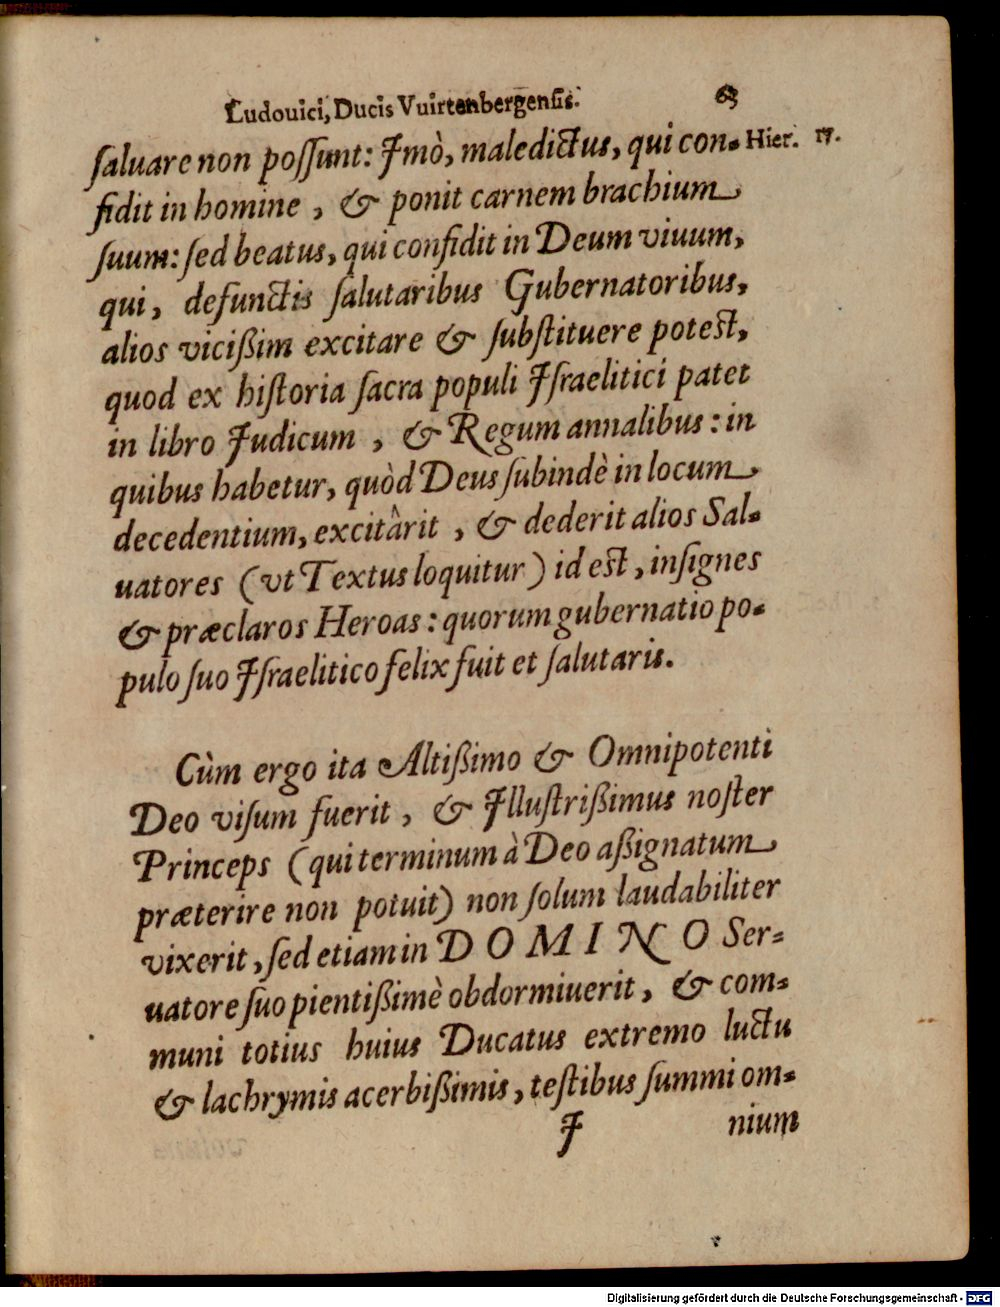 Ludouici, Ducis Vuirtenbergensis. 65
ſaluare non poſſunt: Imò, maledictus, qui con- Hier. 17.
fidit in homine, & ponit carnem brachium
ſuum: ſed beatus, qui confidit in Deum viuum,
qui, defunctis ſalutaribus Gubernatoribus,
alios vicißim excitare & ſubſtituere poteſt,
quod ex hiſtoria ſacra populi Iſraelitici patet
in libro Iudicum, & Regum annalibus: in
quibus habetur, quòd Deus ſubindè in locum
decedentium, excitârit, & dederit alios Sal-
uatores (vt Textus loquitur) id eſt, inſignes
& præclaros Heroas: quorum gubernatio po-
pulo ſuo Iſraelitico felix fuit et ſalutaris.
Cùm ergo ita Altißimo & Omnipotenti
Deo viſum fuerit, & Illuſtrißimus noſter
Princeps (qui terminum à Deo aßignatum
præterire non potuit) non ſolum laudabiliter
vixerit, ſed etiam in DOMINO Ser-
uatore ſuo pientißimè obdormiuerit, & com-
muni totius huius Ducatus extremo luctu
& lachrymis acerbißimis, teſtibus ſummi om-
I nium
Digitalisierung gefördert durch die Deutsche Forschungsgemeinschaft - DFG